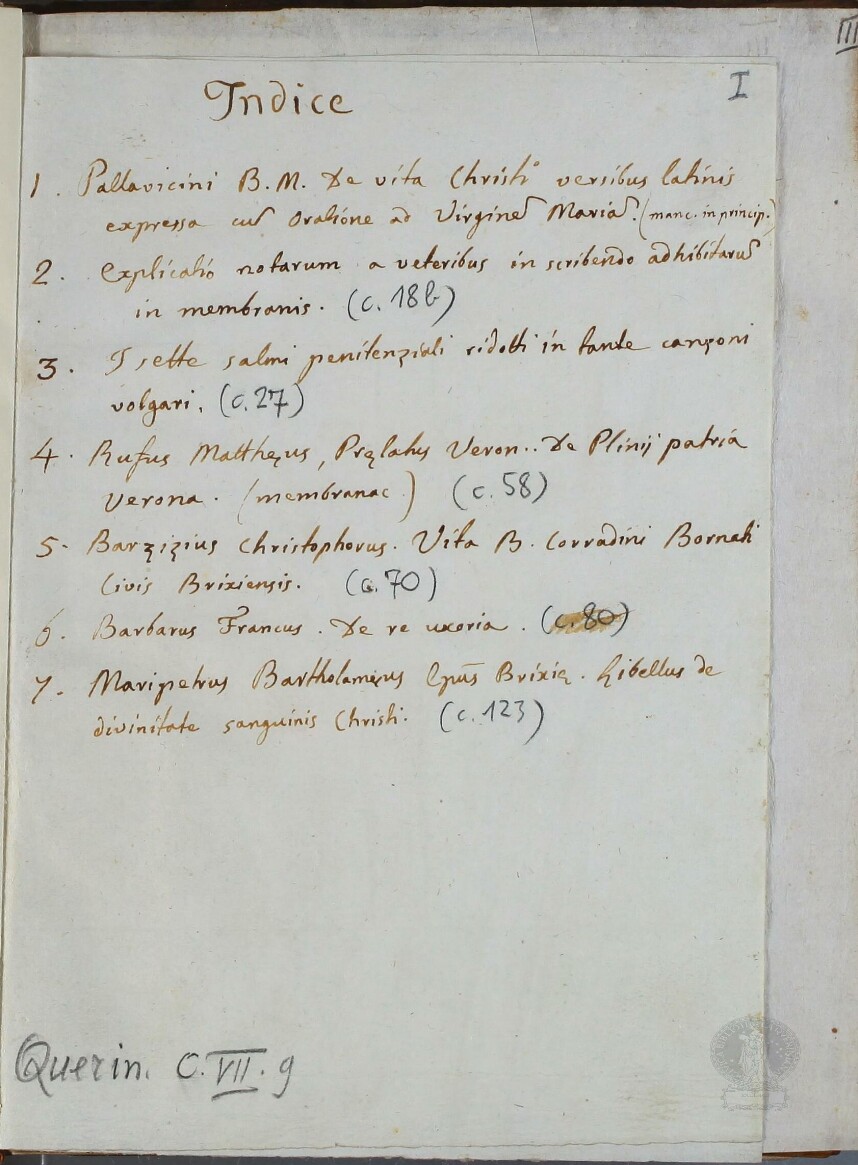 III
I
Indice
1. Pallavicini B. M. De vita Christi versibus latinis
expressa cū Oratione ad Virginē Mariā. (manc. in princip.)
2. Explicatio notarum a veteribus in scribendo adhibitarū
in membranis. (c. 18b)
3. I sette salmi penitenziali ridotti in tante canzoni
volgari. (c. 27)
4. Rufus Matthęus, Pręlatus Veron.. De Plinij patria
Verona. (membranac.) (c. 58)
5. Barzizius Christophorus. Vita B. Corradini Bornati
Civis Brixiensis. (c. 70)
6. Barbarus Francus. De re uxoria. (c. 80)
7. Maripetrus Bartholamęus Epūs Brixię. Libellus de
divinitate sanguinis Christi. (c. 123)
Querin. C. VII. 9